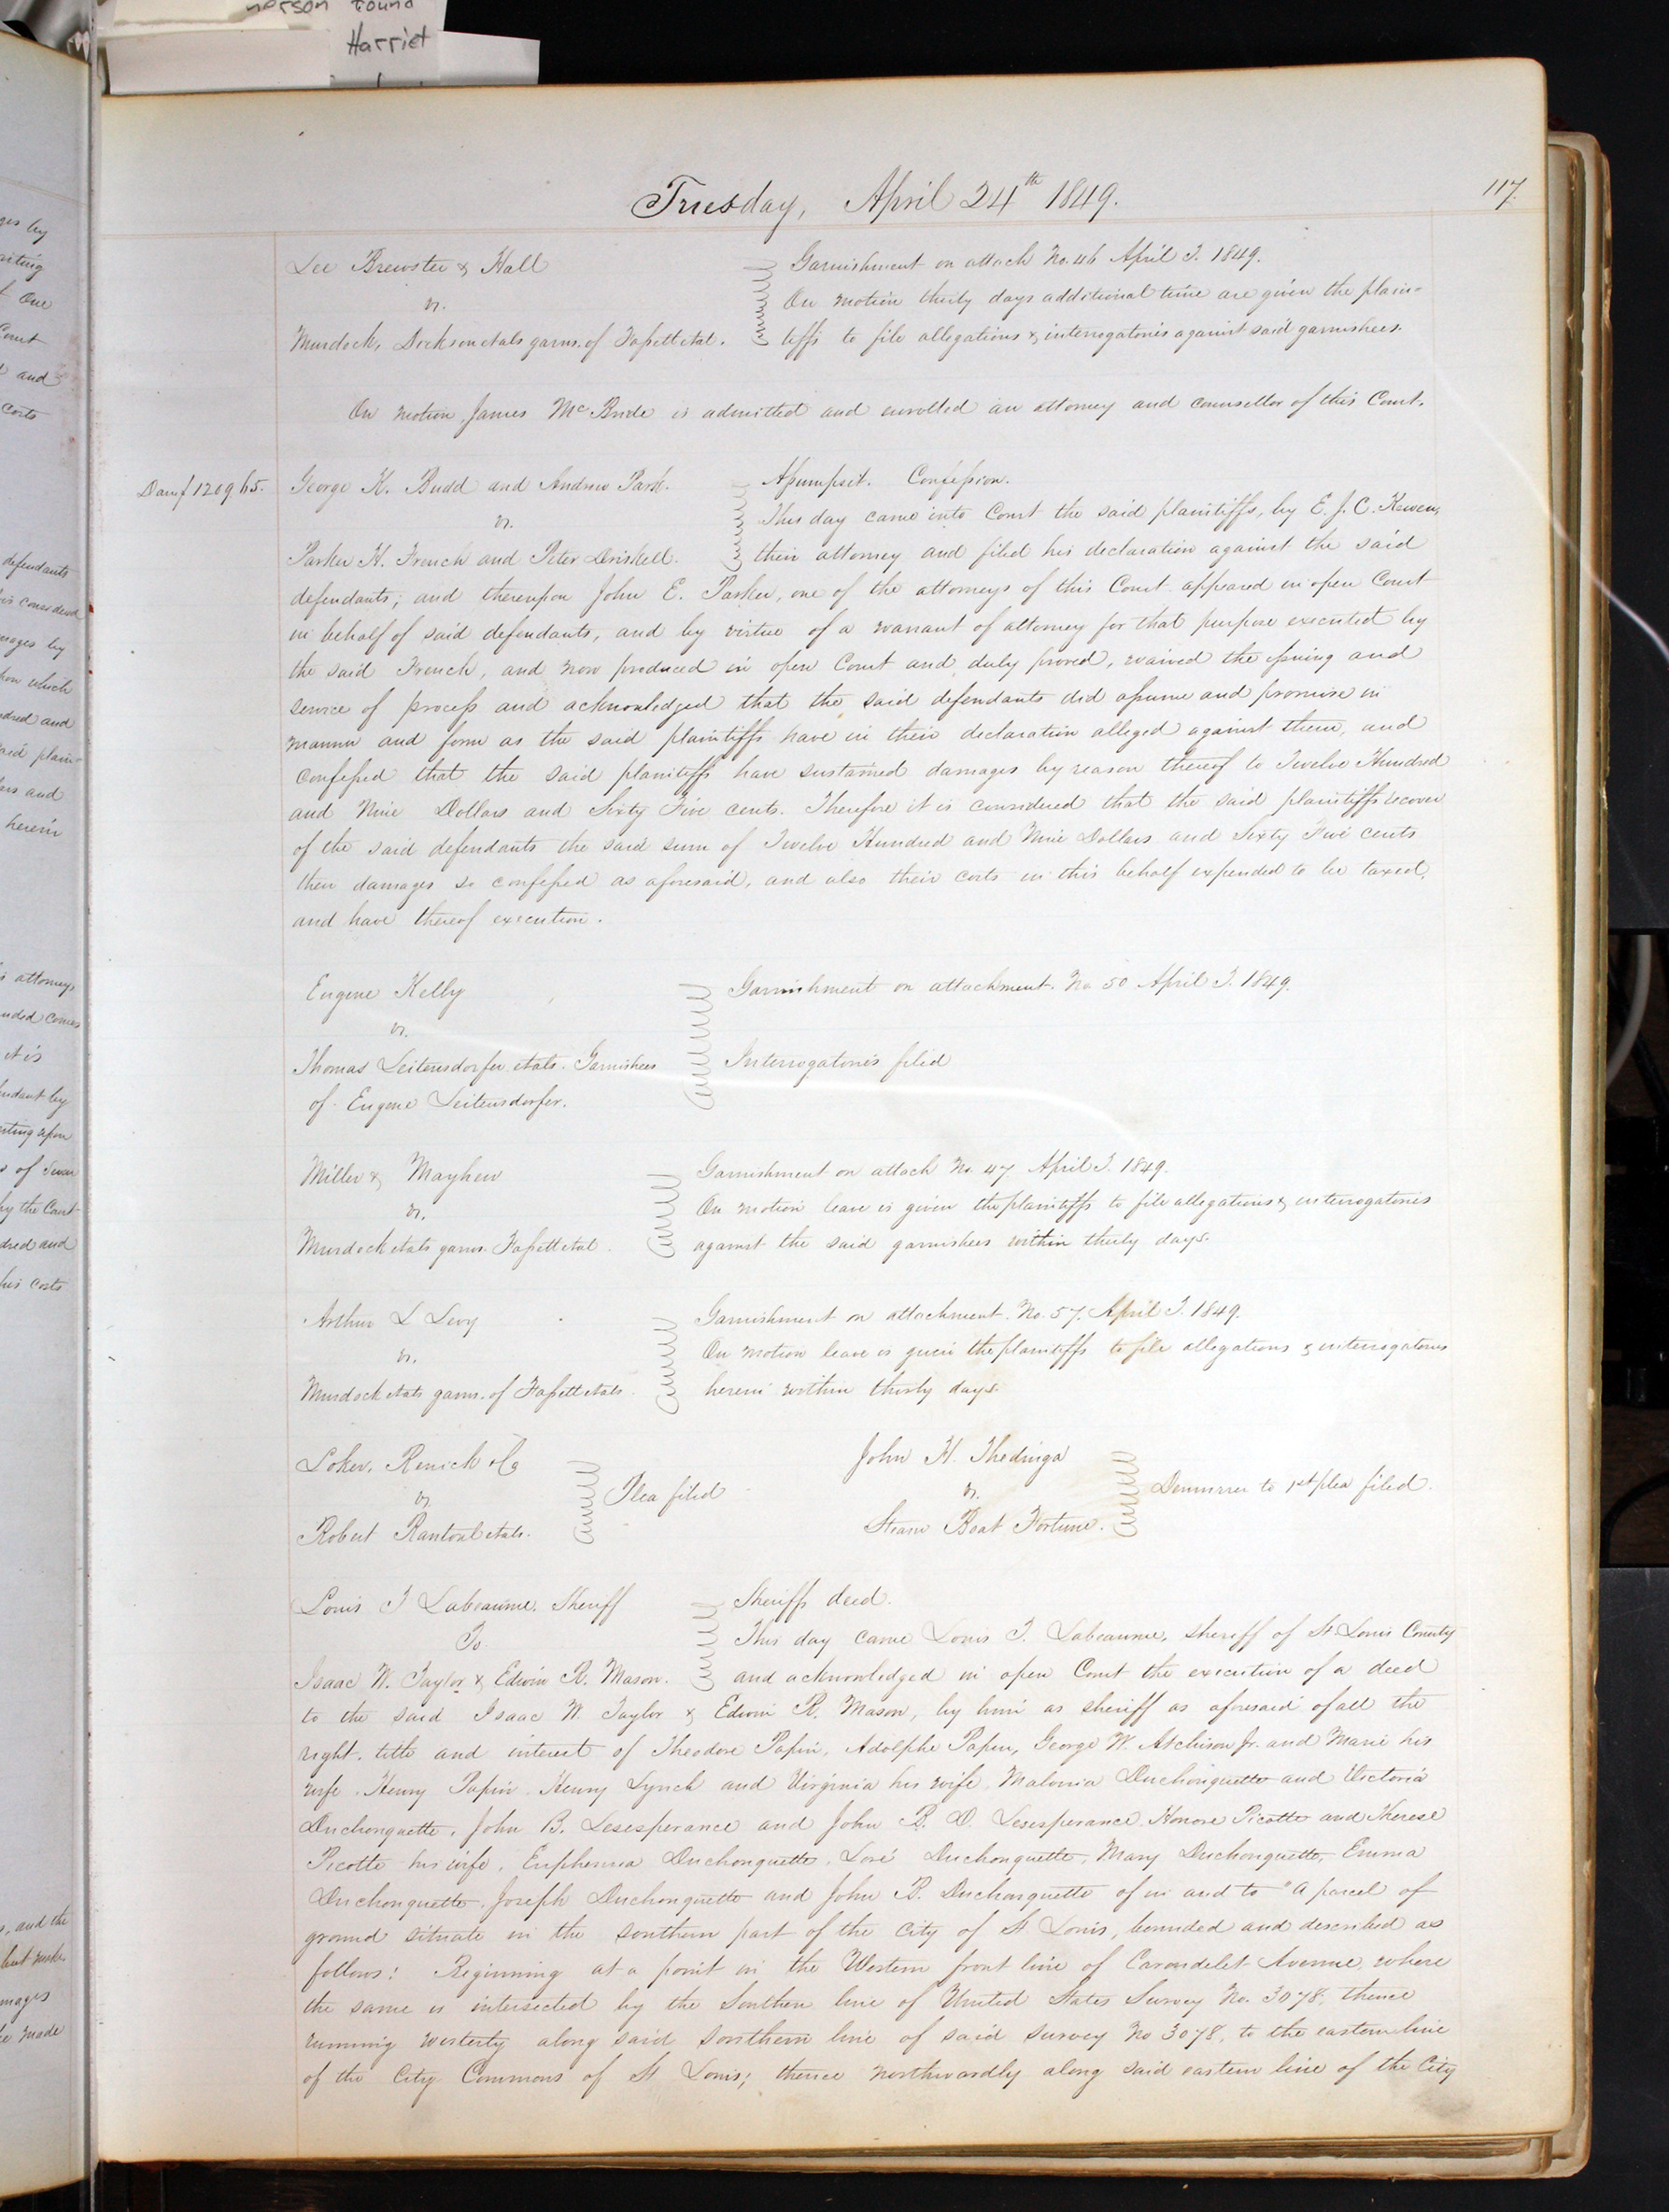 person found
Harriet
117.
Tuesday, April 24th 1849.
Lee Brewster & Hall
vs.
Murdock, Dickson et als garns. of Fassett et al.
Garnishment on attach No. 46 April T. 1849.
On motion thirty days additional time are given the plain=
tiffs to file allegations & interrogatories against said garnishees.
On motion James McBride is admitted and enrolled an attorney and counsellor of this Court.
Dam$ 1209 65.
George K. Budd and Andrew Park.
vs.
Parker H. French and Peter Driskell.
Assumpsit. Confession.
This day came into Court the said plaintiffs, by E. J. C. Kewen,
their attorney and filed his declaration against the said
defendants; and thereupon John E. Parker, one of the attorneys of this Court appeared in open Court
in behalf of said defendants, and by virtue of a warrant of attorney for that purpose executed by
the said French, and now produced in open Court and duly proved, waived the issuing and
service of process and acknowledged that the said defendants did assume and promise in
manner and form as the said plaintiffs have in their declaration alleged against them, and
confessed that the said plaintiffs have sustained damages by reason thereof to Twelve Hundred
and Nine Dollars and Sixty Five cents. Therefore it is considered that the said plaintiffs recover
of the said defendants the said sum of Twelve Hundred and Nine Dollars and Sixty Five cents
their damages so confessed as aforesaid, and also their costs in this behalf expended to be taxed,
and have thereof execution.
Eugene Kelly
vs.
Thomas Leitensdorfer et als. Garnishees
of Eugene Leitensdorfer.
Garnishment on attachment. No 50 April T. 1849.
Interrogatories filed
Miller & Mayhew
vs.
Murdock et als garns. Fassett et al.
Garnishment on attach No. 47 April T. 1849.
On motion leave is given the plaintiffs to file allegations & interrogatories
against the said garnishees within thirty days.
Arthur L Levy
vs.
Murdock et als garns. of Fassett et als.
Garnishment on attachment. No. 57. April T. 1849.
On motion leave is given the plaintiffs to file allegations & interrogatories
herein within thirty days.
Loker, Renick & Co
vs
Robert Rantoul et als.
Plea filed
John H. Thedinga
vs.
Steam Boat Fortune.
Demurrer to 1st plea filed.
Louis T Labeaume, Sheriff
To.
Isaac W. Taylor & Edwin R. Mason.
Sheriffs deed.
This day came Louis T. Labeaume, sheriff of St Louis County
and acknowledged in open Court the execution of a deed
to the said Isaac W. Taylor & Edwin R. Mason, by him as sheriff as aforesaid of all the
right. title and interest of Theodore Papin, Adolphe Papin, George W. Atchison Jr. and Marie his
wife. Henry Papin. Henry Lynch and Virginia his wife. Malvinia Duchouquette and Victoria
Duchouquette. John B. Lesesperance and John B. D. Lesesperance. Honore Picotte and Therese
Picotte his wife. Euphemia Duchouquette. Lore Duchouquette, Mary Duchouquette, Emma
Duchouquette. Joseph Duchouquette and John B. Duchouquette of in and to "A parcel of
ground situate in the southern part of the City of St Louis, bounded and described as
follows: Beginning at a point in the Western front line of Carondelet Avenue, where
the same is intersected by the Southern line of United States Survey No. 3078, thence
running westerly along said southern line of said survey No 3078, to the eastern line
of the City Commons of St Louis; thence northwardly along said eastern line of the City